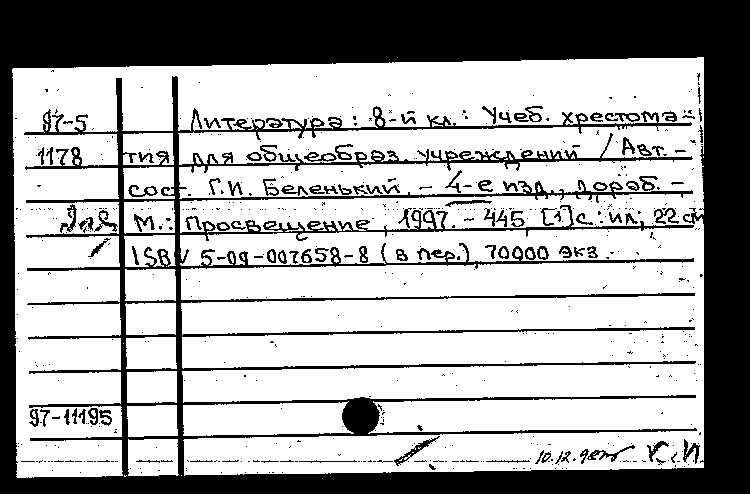 97-5 Литература: 8-й кл.: Учеб. хрестома-
1178 тия для общеобраз. учреждений / Авт.-
сост. Г.И. Беленький. - 4-е изд., дораб. -
М.: Просвещение, 1997. - 445, [1]с.: ил.; 22 см
ISBN 5-09-007658-8 (в пер.), 70000 экз.
97-11195
10.12.98